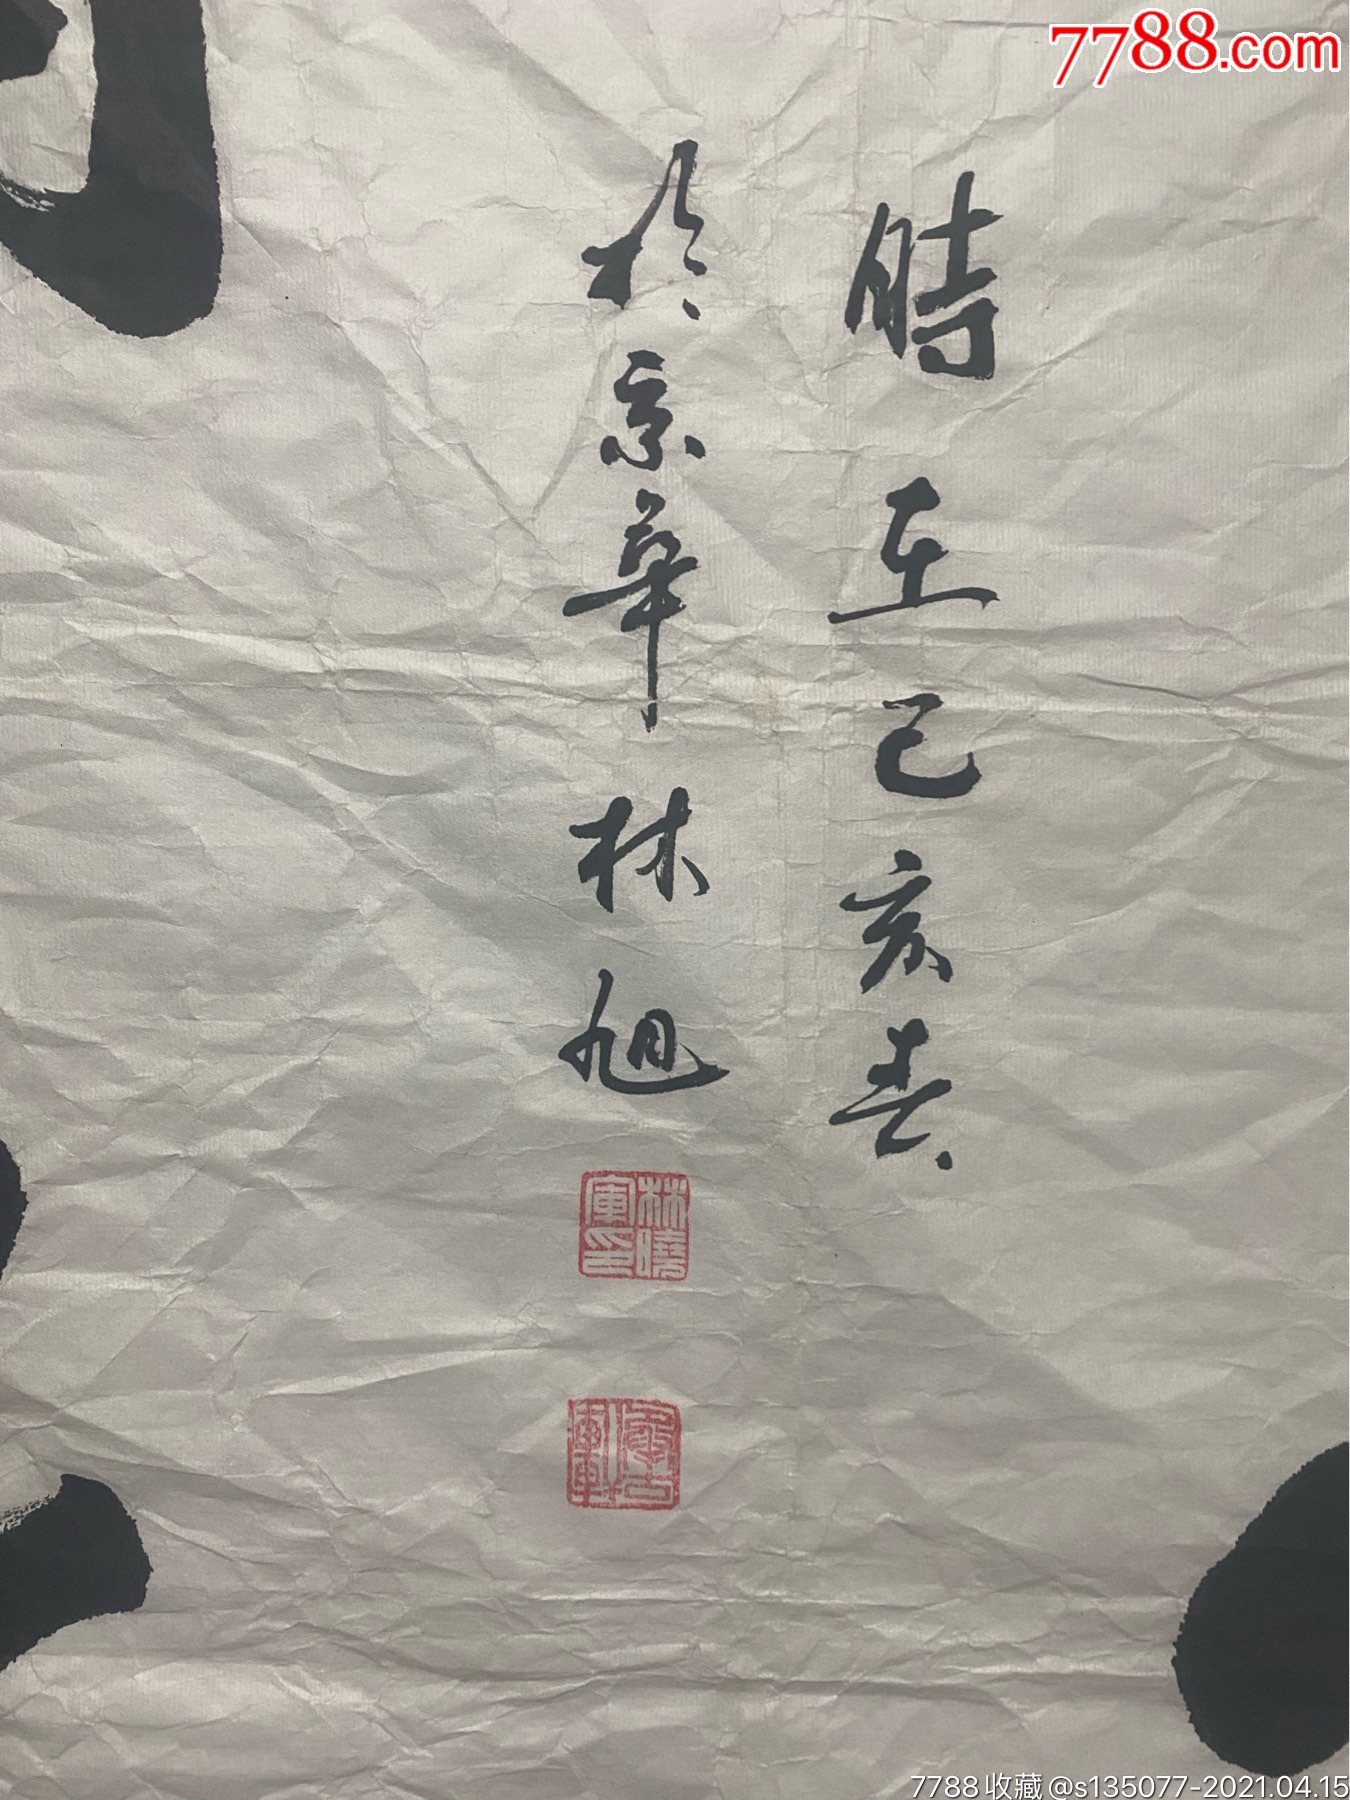 7788.com
時在己亥春
於京華林旭
林曉軍印
7788收藏@s135077-2021.04.15